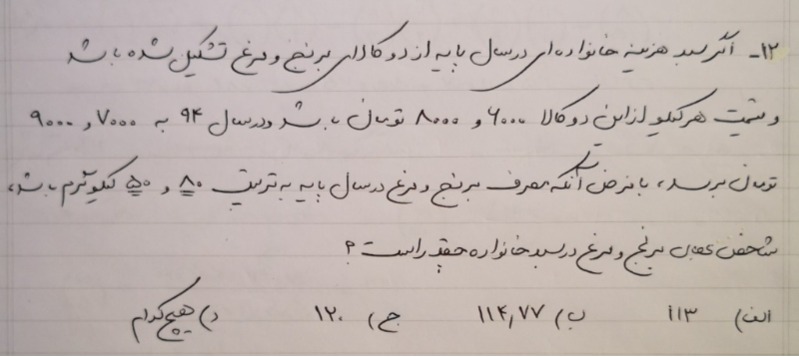 ۱۲- اگر سبد هزینه خانواده ای در سال پایه از دو کالای برنج و مرغ تشکیل شده باشد
و قیمت هر کیلو از این دو کالا ۶۰۰۰ و ۸۰۰۰ تومان باشد و در سال ۹۴ به ۷۰۰۰ و ۹۰۰۰
تومان برسد، با فرض آنکه مصرف برنج و مرغ در سال پایه به ترتیب ۸۰ و ۵۰ کیلوگرم باشد،
شاخص بهای برنج و مرغ در سبد خانواده چقدر است؟
الف) ۱۱۳ ب) ۱۱۴,۷۷ ج) ۱۲۰ د) هیچ کدام